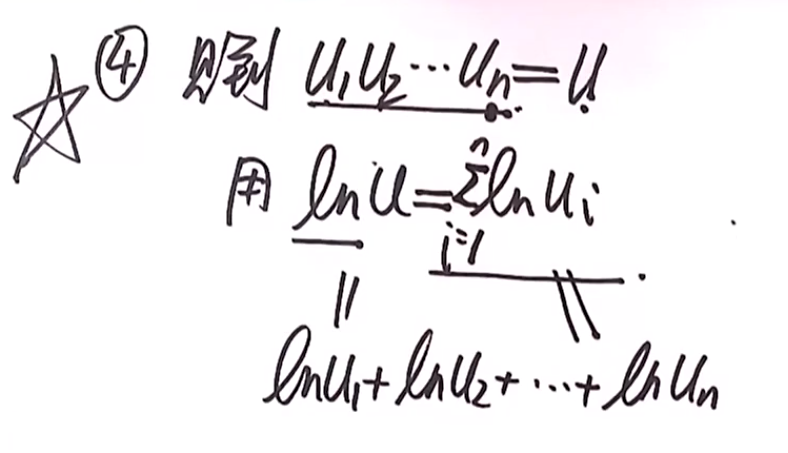 ④ 见到 u₁u₂…uₙ=u
用 ln u=∑ⁿᵢ₌₁ ln uᵢ
|| ||
ln u₁+ln u₂+…+ln uₙ